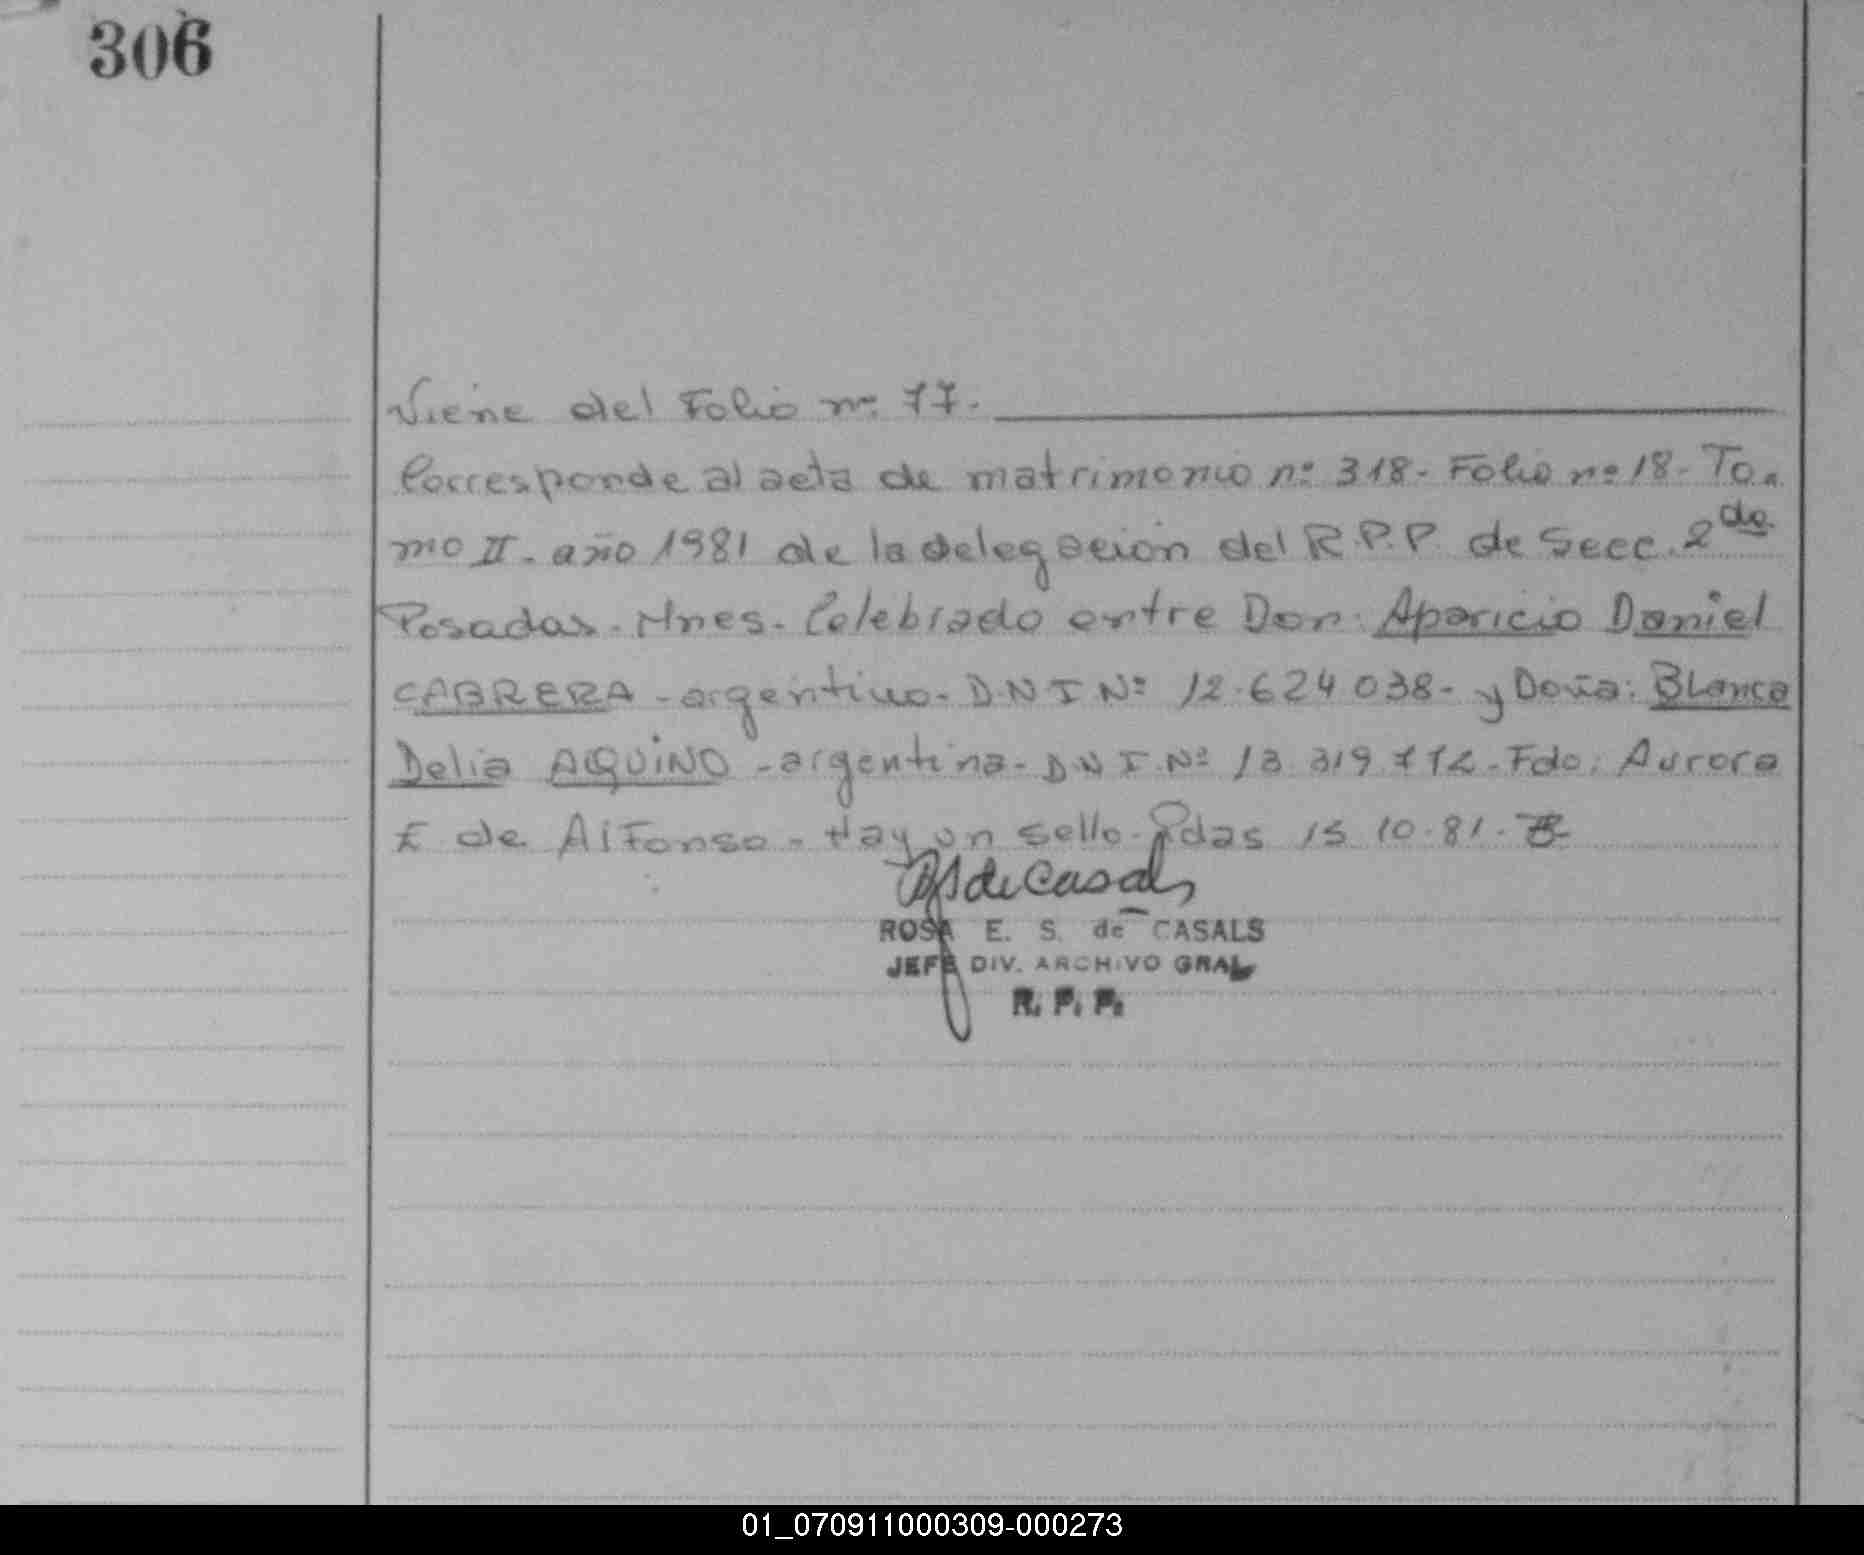 306
Viene del Folio nº 77.
Corresponde al acta de matrimonio nº 318- Folio nº 18- To-
mo II- año 1981 de la delegación del R.P.P. de Secc. 2do
Posadas- Mnes- Celebrado entre Don: Aparicio Daniel
CABRERA -argentino- D.N.I Nº 12.624.038- y Doña: Blanca
Delia AQUINO -argentina- D.N.I. Nº 13.319.772- Fdo: Aurora
E de Alfonso- Hay un sello- Pdas 15 10.81-
de Casals
ROSA E. S. de CASALS
JEFE DIV. ARCHIVO GRAL
R. P. P.
01_070911000309-000273